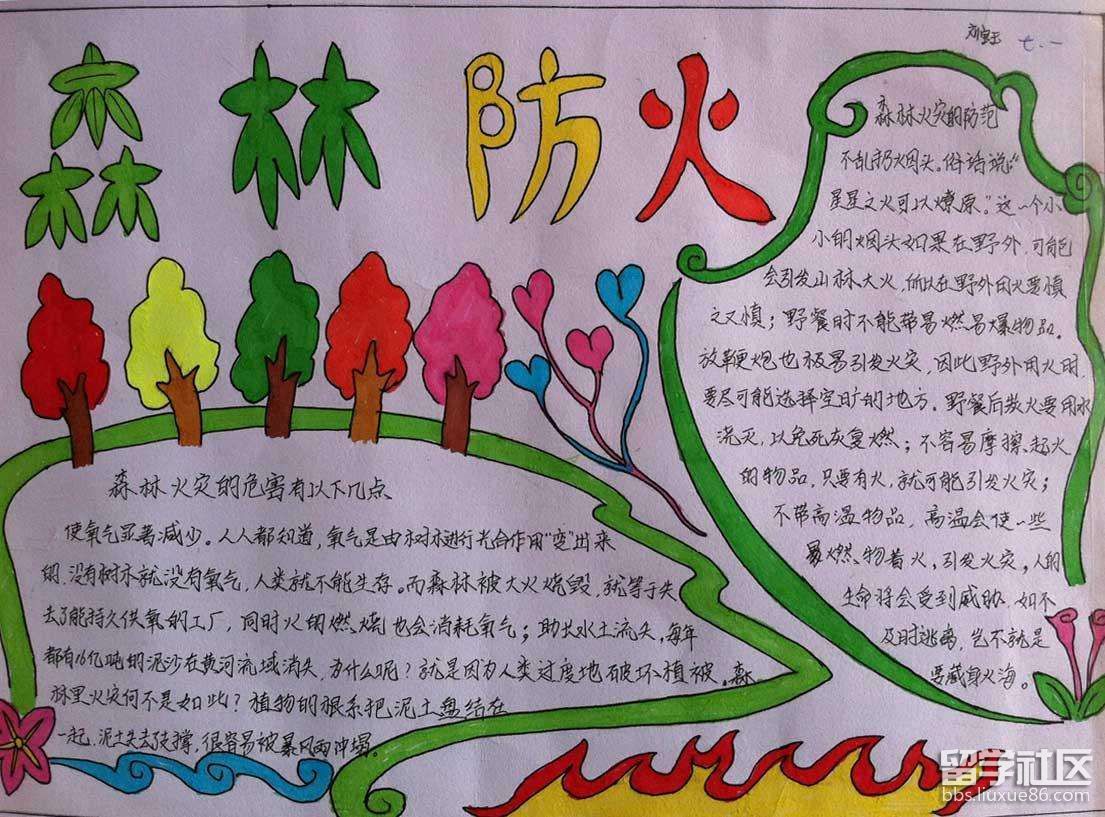 森林防火
刘宝玉 七.一
森林火灾的危害有以下几点
使氧气显著减少。人人都知道,氧气是由树木进行光合作用“变”出来
的,没有树木就没有氧气,人类就不能生存。而森林被大火烧毁,就等于失
去了能持久供氧的工厂,同时火的燃烧也会消耗氧气;助长水土流失,每年
都有16亿吨的泥沙在黄河流域消失,为什么呢?就是因为人类过度地破坏植被。森
林里火灾何不是如此?植物的根系把泥土盘结在
一起,泥土失去支撑,很容易被暴风雨冲塌。
森林火灾的防范
不乱扔火烟头。俗话说:“
星星之火可以燎原。”这一个小
小的烟头如果在野外,可能
会引发山林大火,所以在野外用火要慎
之又慎;野餐时不能带易燃易爆物品。
放鞭炮也极易引发火灾,因此野外用火时,
要尽可能选择空旷的地方。野餐后散火要用水
浇灭,以免死灰复燃;不容易摩擦起火
的物品,只要有火,就可能引发火灾;
不带高温物品,高温会使一些
易燃物着火,引发火灾,人的
生命将会受到威胁,如不
及时逃离,岂不就是
要葬身火海。
留学社区
bbs.liuxue86.com